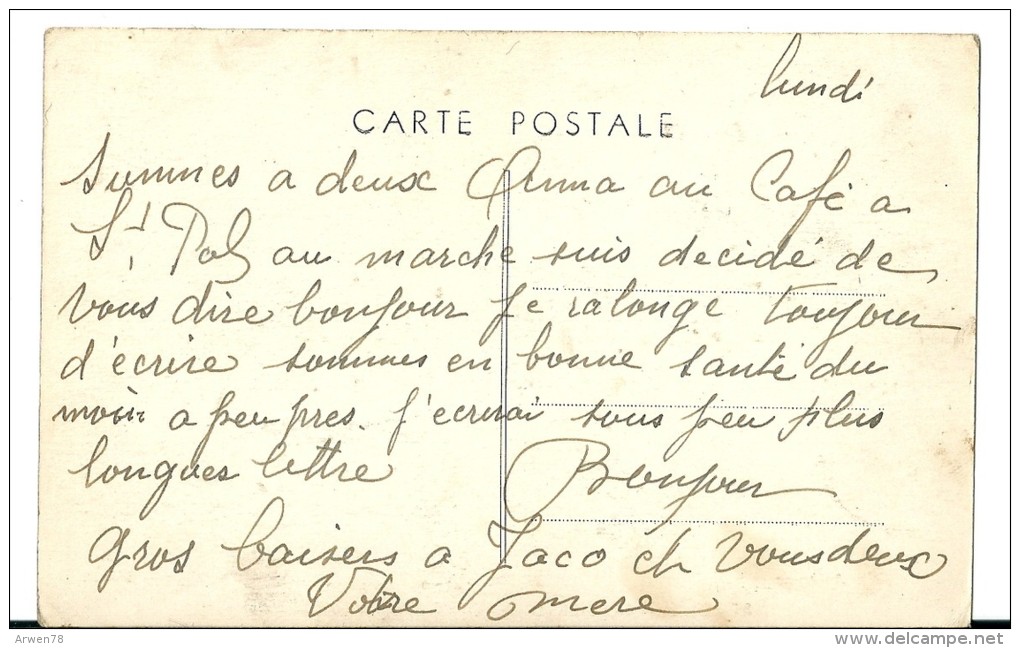 lundi
CARTE POSTALE
Sommes a deux Anna au Café a
St Pol au marche suis decidé de
vous dire bonjour je ralonge toujour
d'écrire sommes en bonne santé du
moin a peu pres. j'ecrirai sous peu plus
longues lettre Bonjour
gros baisers a Jaco et vous deux
Votre mere
Arwen78
www.delcampe.net